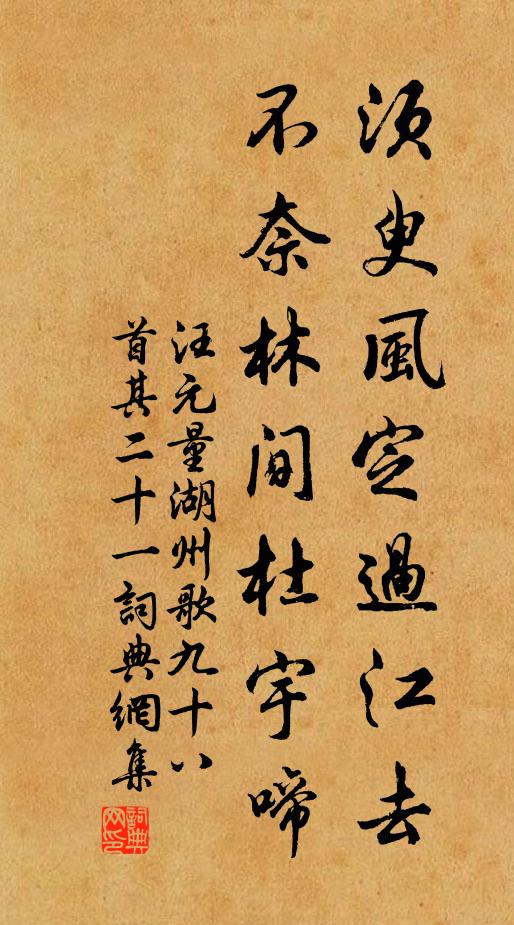 須臾風定過江去
不奈林間杜宇啼
汪元量湖州歌九十八
首其二十一詞典網集
詞典
网印